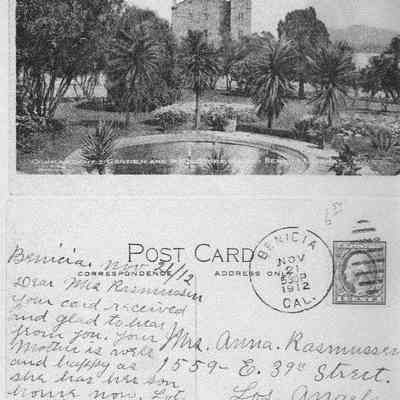 COMMANDANT'S GARDEN AND
POST CARD
CORRESPONDENCE
ADDRESS ONLY
BENICIA
NOV
21
530P
1912
CAL.
Benicia, Nov 21/12
Dear Mrs Rasmussen
Your card received
and glad to hear
from you. your
Mother is well
and happy as
she has her son
home now.
Mrs. Anna. Rasmussen
1559 - E. 39th Street.
Los Angeles